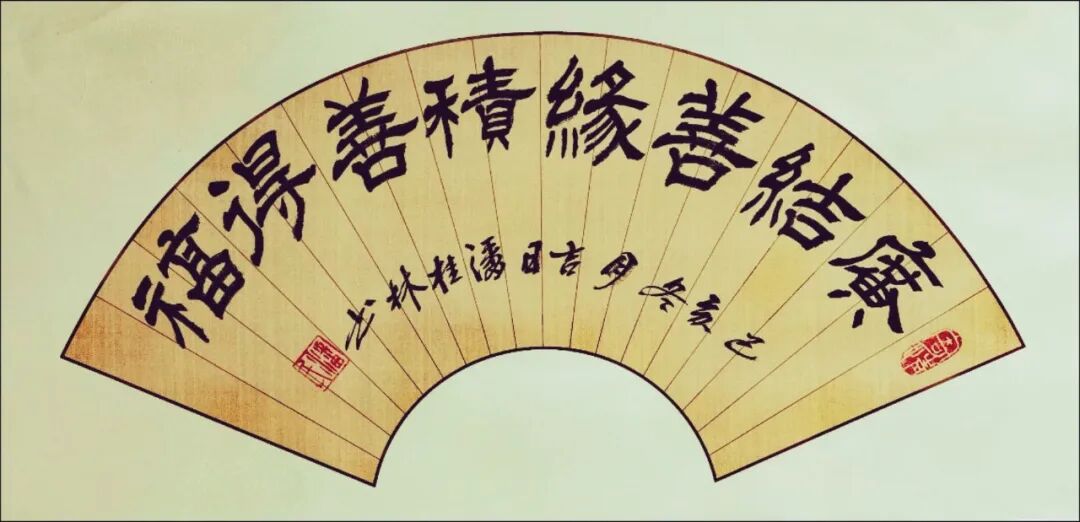 廣結善緣積善得福
己亥冬月吉日潘桂林书